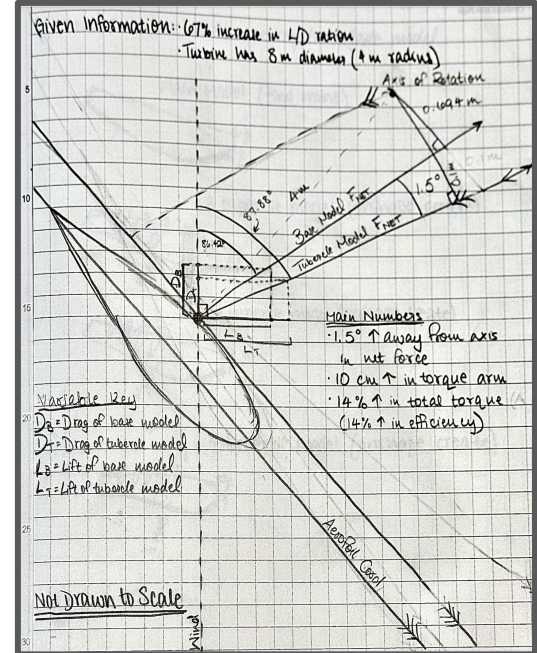 Given Information: · 67% increase in L/D ration
· Turbine has 8m diameter (4m radius)
5
Axis of Rotation
0.694m
10
87.88°
4m
Base Model FNET
1.5°
86.42°
Tubercle Model FNET
DB
DT
15
LB
LT
Main Numbers
· 1.5° ↑ away from axis
in net force
· 10 cm ↑ in torque arm
· 14% ↑ in total torque
(14% ↑ in efficiency)
Variable Key
DB = Drag of base model
DT = Drag of tubercle model
LB = Lift of base model
LT = Lift of tubercle model
20
25
Aerofoil Cord
Not Drawn to Scale
Wind
30